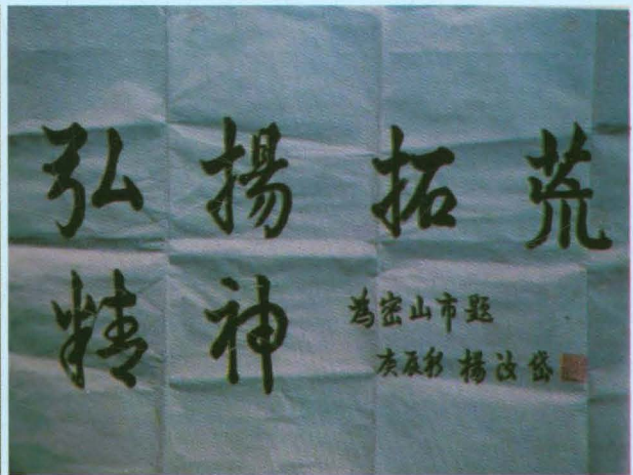 弘揚拓荒
精神
為密山市題
庚辰秋 楊汝岱